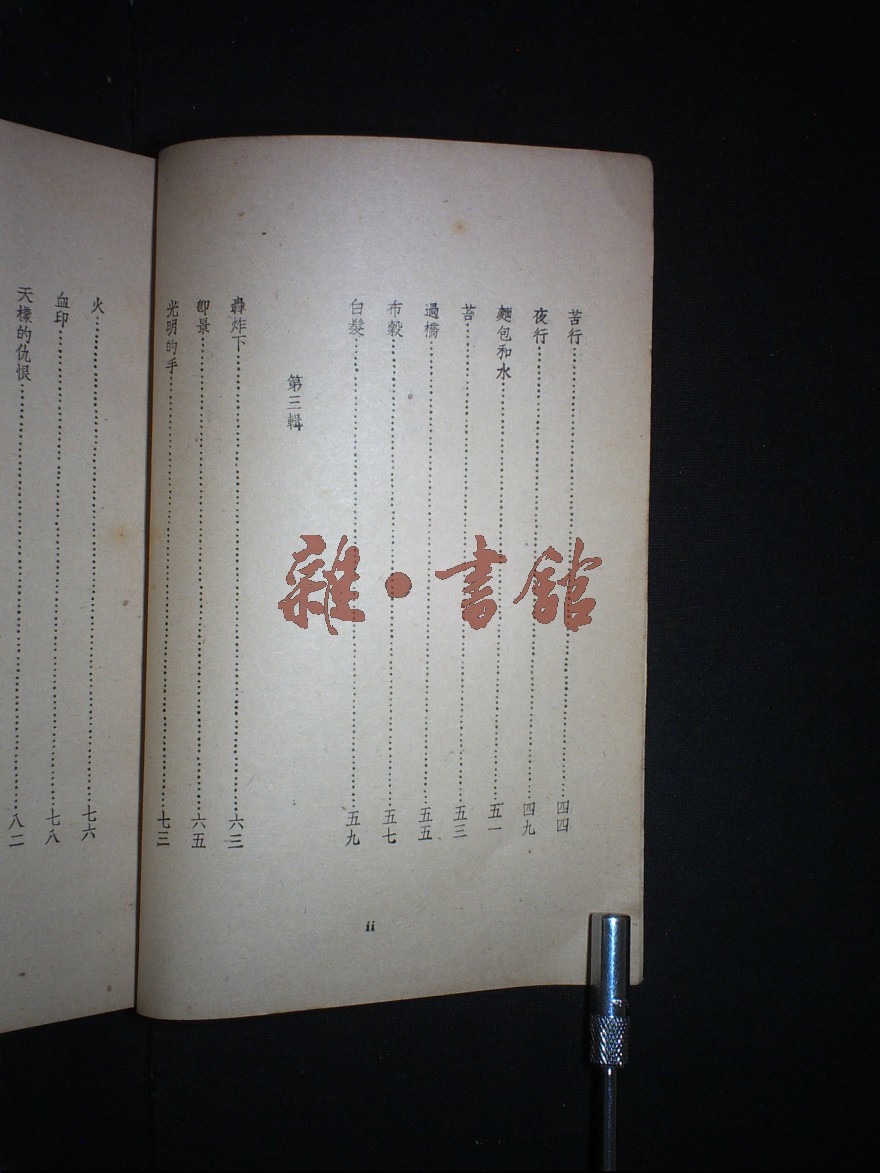 苦行⋯⋯四四
夜行⋯⋯四九
麵包和水⋯⋯五一
苔⋯⋯五三
過橋⋯⋯五五
布穀⋯⋯五七
白髮⋯⋯五九
第三輯
轟炸下⋯⋯六三
卽景⋯⋯六五
光明的手⋯⋯七三
ii
火⋯⋯七六
血印⋯⋯七八
天樣的仇恨⋯⋯八二
雜·書館